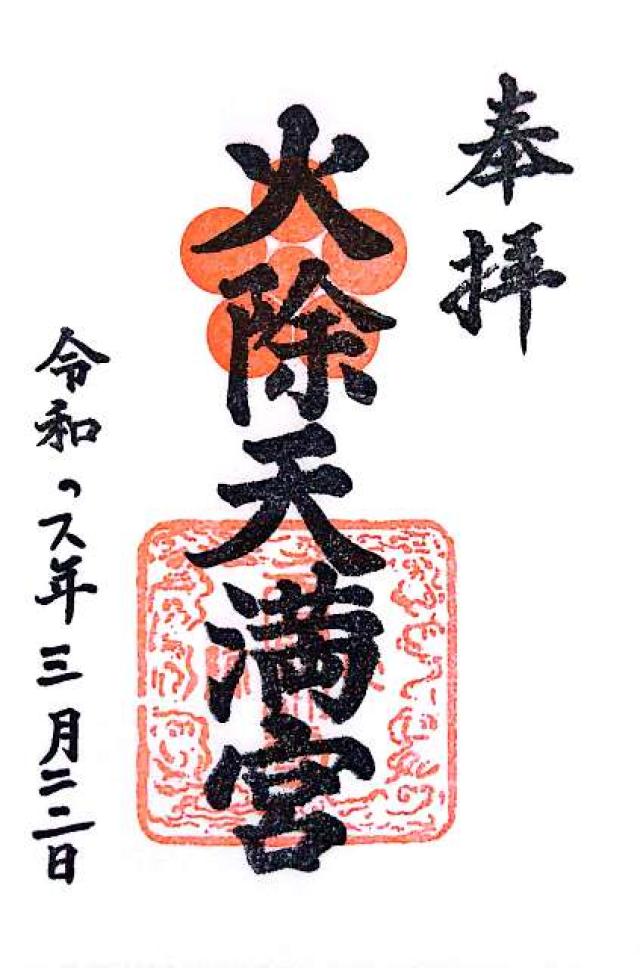 奉拝
火除天満宮
令和六年三月二二日